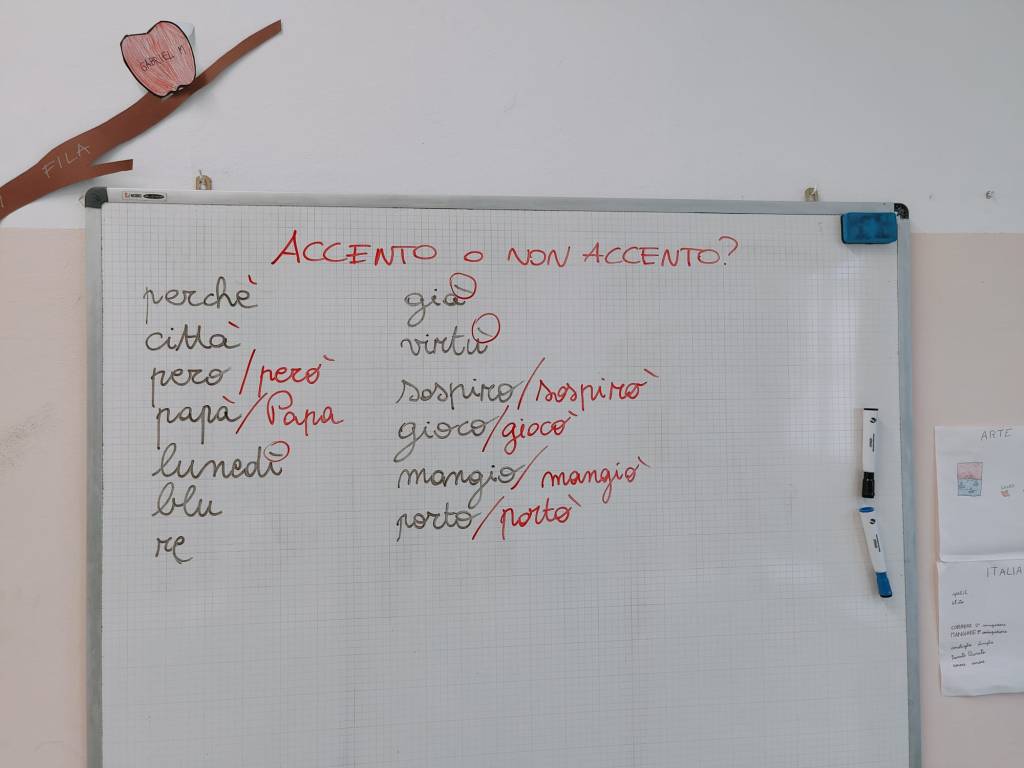 GABRIEL M
FILA
ACCENTO O NON ACCENTO?
perchè
città
pero/però
papà/Papa
lunedì
blu
re
già
virtù
sospiro/sospirò
gioco/giocò
mangio/mangiò
porto/portò
ARTE
ITALIA